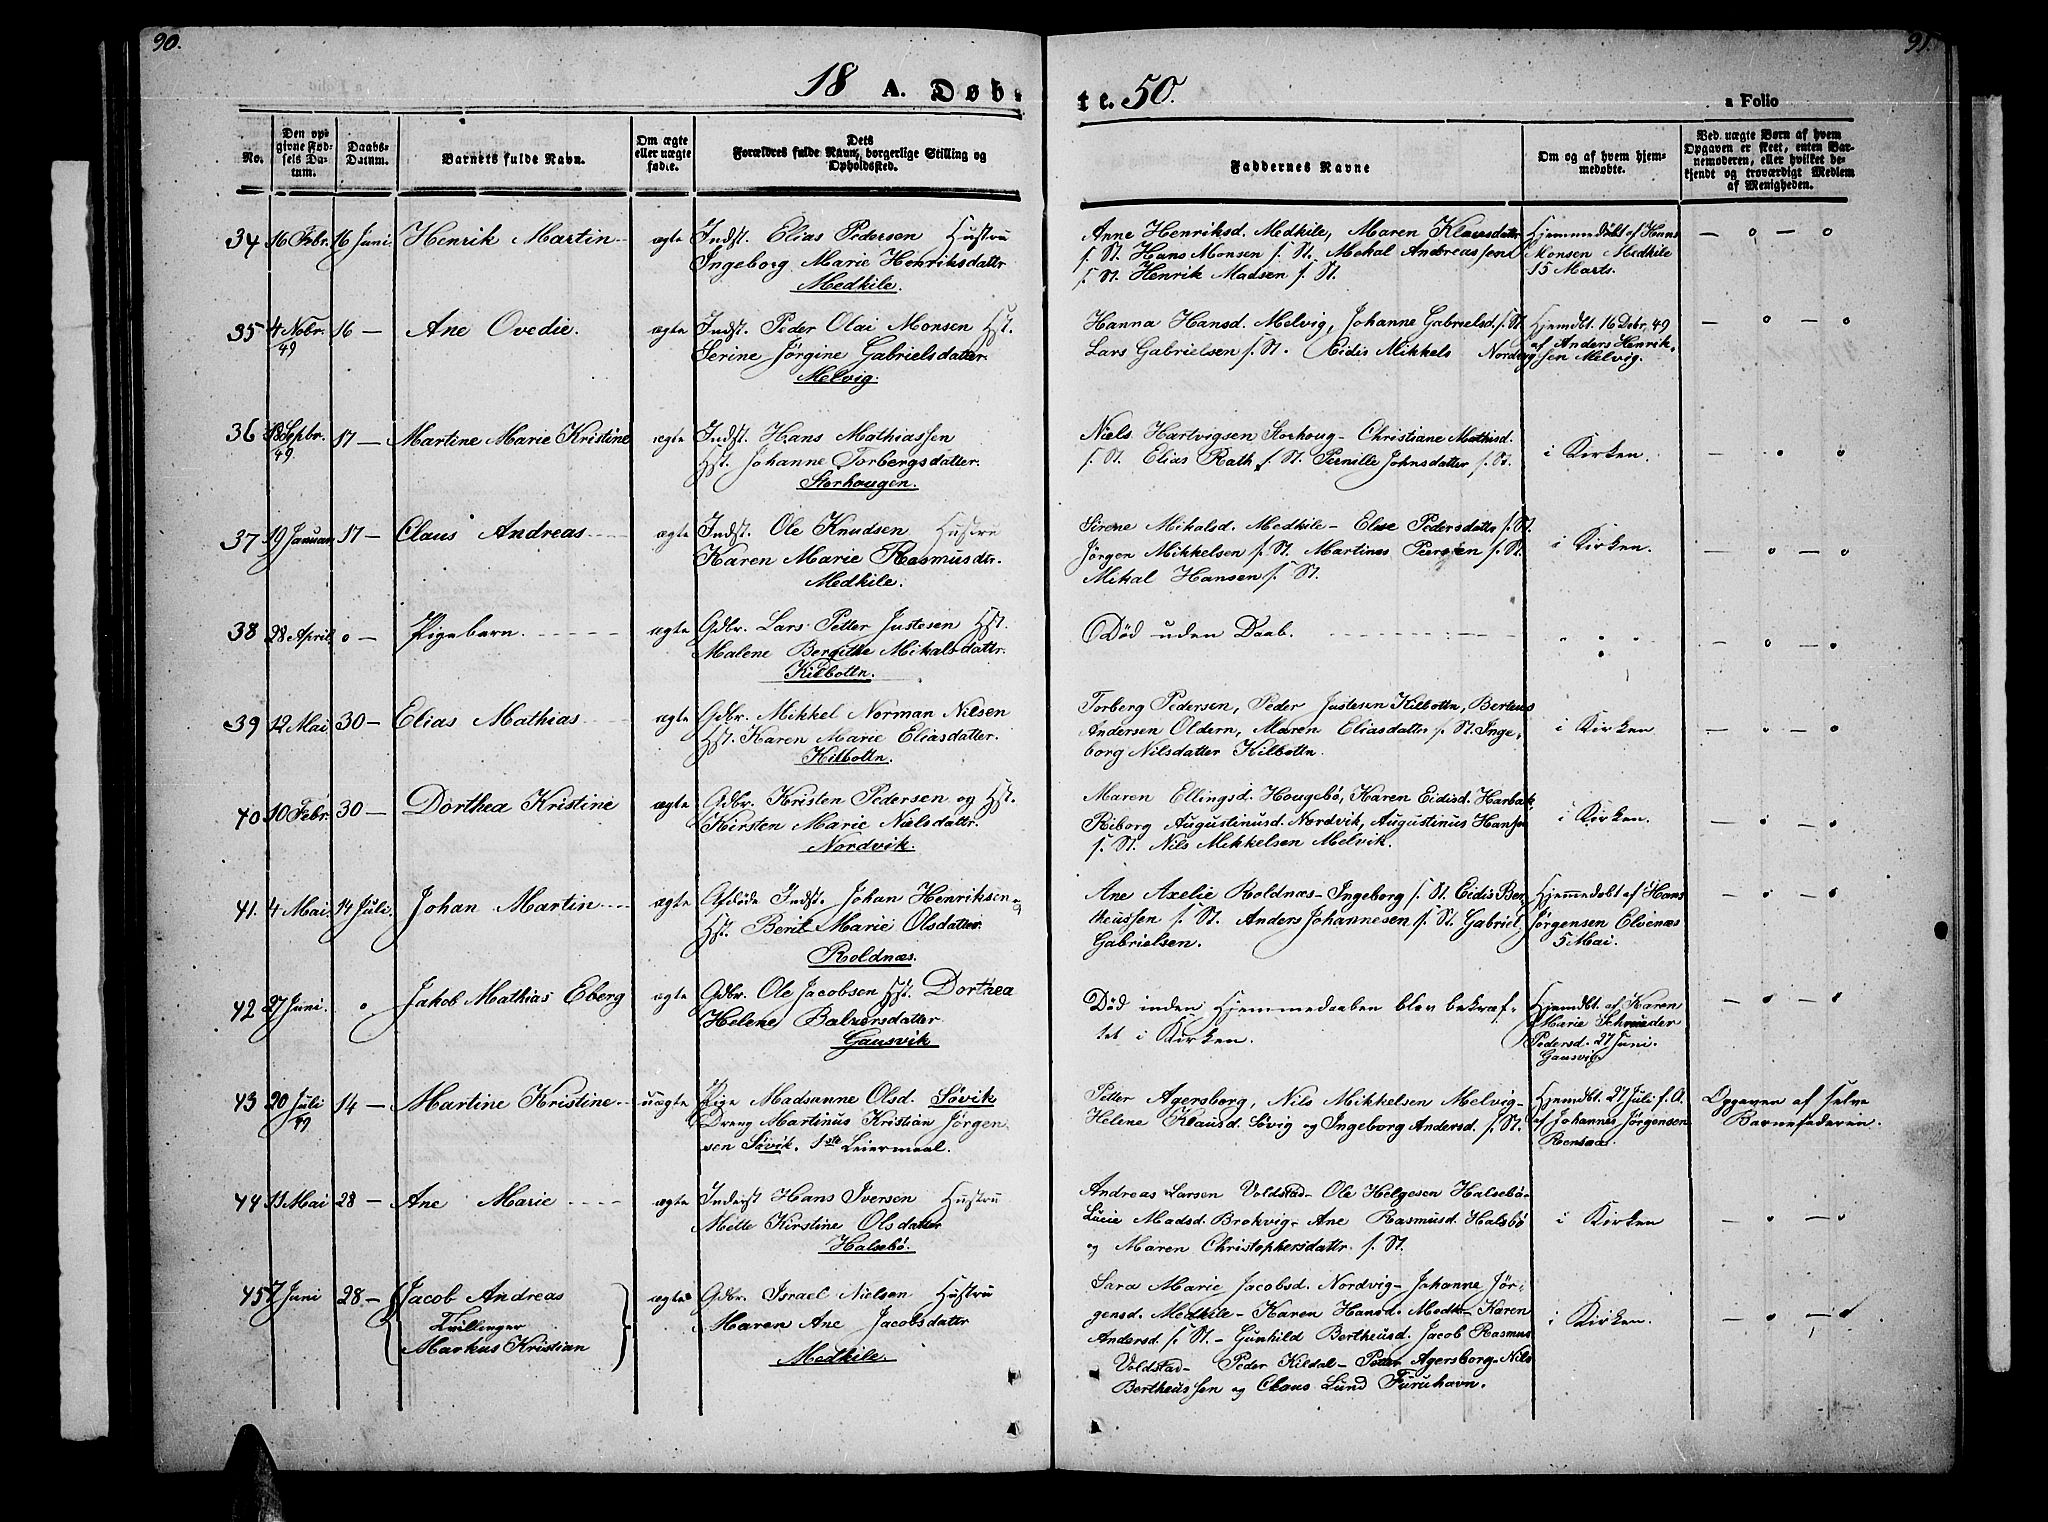 90.
91.
18 A. Døb-
te. 50.
a Folio
No.
Den op-
givne Fød-
sels Da-
tum.
Daabs-
Datum.
Barnets fulde Navn.
Om ægte
eller uægte
fødte.
Dets
Forældres fulde Navn, borgerlige Stilling og
Opholdssted.
Faddernes Navne
Om og af hvem hjem-
medøbte.
Ved uægte Børn af hvem
Opgaven er skeet, enten Bar-
nemoderen, eller hvilket be-
kjendt og troværdigt Medlem
af Menigheden.
34 16 Febr. 16 Juni. Henrik Martin ægte Indst. Elias Pedersen Hustru
Ingeborg Marie Henriksdattr
Medkile.
Anne Henriksd. Medkile, Maren Klausdattr
f. St. Hans Monsen f. St. Mikal Andreassen
f. St. Henrik Madsen f. St.
Hjemmedøbt af Hans
Monsen Medkile
15 Marts.
— o — o
35 4 Nobr. 16 — Ane Ovedie. ægte Indst. Peder Olai Monsen Hst.
49
Serine Jørgine Gabrielsdatter
Melvig.
Hanna Hansd. Melvig, Johanne Gabrielsd. f. St
Lars Gabrielsen f. St. Eidis Mikkels Nordvig
Hjemdbt. 16 Debr. 49
af Anders Henrik-
sen Melvig.
— o — o
36 18 Sepbr. 17 — Martine Marie Kristine ægte Indst. Hans Mathiassen
49
Hst. Johanne Torbergsdatter.
Storhougen.
Niels Hartvigsen Storhoug - Christiane Mathisd.
f. St. Elias Rath f. St. Pernille Johnsdatter f. St.
i Kirken.
— o — o
37 19 Januar 17 — Claus Andreas ægte Indst. Ole Knudsen Hustru
Karen Marie Rasmusdtr.
Medkile.
Sirene Mikalsd. Medkile - Elise Pedersdattr f. St.
Jørgen Mikkelsen f. St. Martinus Peersen f. St.
Mikal Hansen f. St.
i Kirken.
— o — o
38 28 April o — Pigebarn. ægte Gdbr. Lars Petter Justesen Hst.
Malene Bergithe Mikalsdattr.
Kilbottn.
Død uden Daab.
— o — o
39 12 Mai 30 — Elias Mathias ægte Gdbr. Mikkel Norman Nilsen
Hst. Karen Marie Eliasdatter.
Kilbottn.
Torberg Pedersen, Peder Justesen Kilbottn, Berteus
Andersen Oldern, Maren Eliasdattr f. St. Inge-
borg Nilsdatter Kilbottn.
i Kirken
— o — o
40 10 Febr. 30 — Dorthea Kristine ægte Gdbr. Kristen Pedersen og Hst.
Kirsten Marie Nielsdattr.
Nordvik.
Maren Ellingsd. Hougebø, Karen Eidisd. Harbak,
Riborg Augustinusd. Nordvik, Augustinus Hansen
f. St. Nils Mikkelsen Melvik.
i Kirken.
— o — o
41. 4 Mai. 14 Juli. Johan Martin ægte Afdøde Indst. Johan Henriksen og
Hst. Berit Marie Olsdatter.
Roldnæs.
Ane Axelie Roldnæs - Ingeborg f. St. Eidis Ber-
theussen f. St. Anders Johannesen f. St. Gabriel
Gabrielsen.
Hjemmedøbt af Hans
Jørgensen Elvenæs
5 Mai.
— o — o
42 27 Juni. o Jakob Mathias Eberg ægte Gdbr. Ole Jacobsen Hst. Dorthea
Helene Balzersdatter
Gausvik
Død inden Hjemmedaaben blev bekræf-
tet i Kirken.
Hjemdbt. af Karen
Marie Schrøder
Pedersd. 27 Juni.
Gausvig
— o — o
43 20 Juli 14 — Martine Kristine uægte Pige Madsanne Olsd. Søvik
49
Dreng Martinus Kristian Jørgen
sen Søvik. 1ste Leiermaal.
Petter Agersborg, Nils Mikkelsen Melvig -
Helene Klausd. Søvig og Ingeborg Andersd. f. St.
Hjemdbt. 27 Juli f. A.
af Johannes Jørgensen
Rensaa.
Opgaven af selve
Barnefaderen.
44 13 Mai 28 — Ane Marie ægte Inderst Hans Iversen Hustru
Mette Kirstine Olsdatter
Halsebø.
Andreas Larsen Voldstad - Ole Helgesen Halsebø -
Lucie Madsd. Brokvig - Ane Rasmusd. Halsbø
og Maren Christophersdattr. f. St.
i Kirken
— o — o
45 7 Juni 28 — Jacob Andreas ægte Gdbr. Israel Nielsen Hustru
Tvillinger
Markus Kristian
Maren Ane Jacobsdattr
Medkile.
Sara Marie Jacobsd. Nordvig - Johanne Jør-
gensd. Medkile - Karen Hansd. Medk. - Karen
Andersd. f. St. - Gunhild Bertheusd. Jacob Rasmus
Voldstad - Peder Kildal - Petter Agersborg - Nils
Bertheussen og Claus Lund Furuhavn.
i Kirken.
— o — o